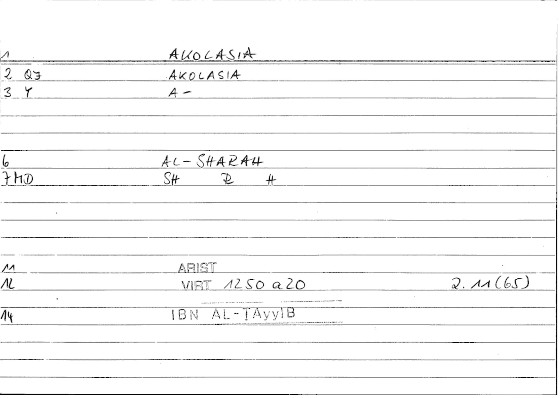 1 AKOLASIA
2 QJ AKOLASIA
3 Y A-
6 AL-SHARAH
7 MD SH R H
11 ARIST
12 VIRT 1250 a20 2.11(65)
14 IBN AL-TAyyIB